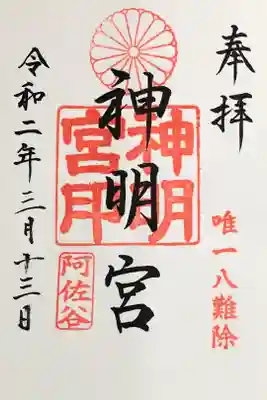 奉拝
唯一八難除
神明宮
神明宮印
阿佐谷
令和二年三月十三日